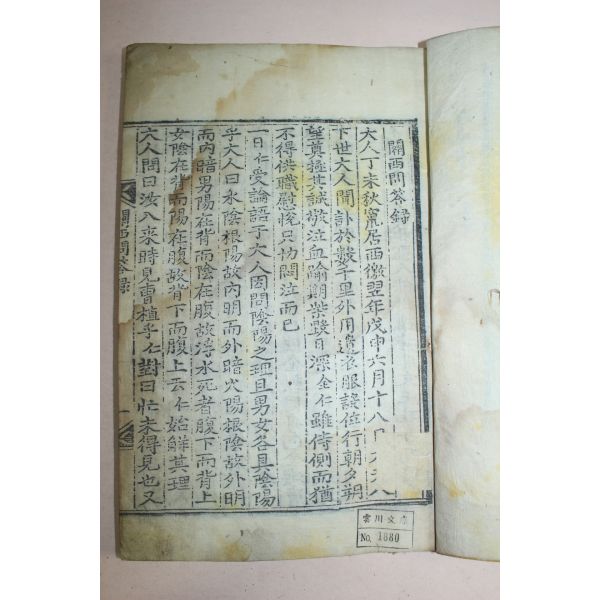 關西問答錄
大人丁未秋竄居西徼翌年戊申六月十八日大夫人
下世大人聞訃於數千里外用邊衣服設位行朝夕朔
望奠極其誠敬泣血踰期柴毀日深全仁雖侍側而猶
不得供職慰悅只切悶泣而已
一日仁愛論語子大人因問陰陽之理且男女各具陰陽
乎大人曰水陰根陽故內明而外暗火陽根陰故外明
而內暗男陽在背而陰在腹故浮水死者腹下而背上
女陰在背而陽在腹故背下而腹上云仁始解其理
大人問曰汝入來時見曹植乎仁對曰忙未得見也又
關西問答錄
一
雲川文庫
No. 1880